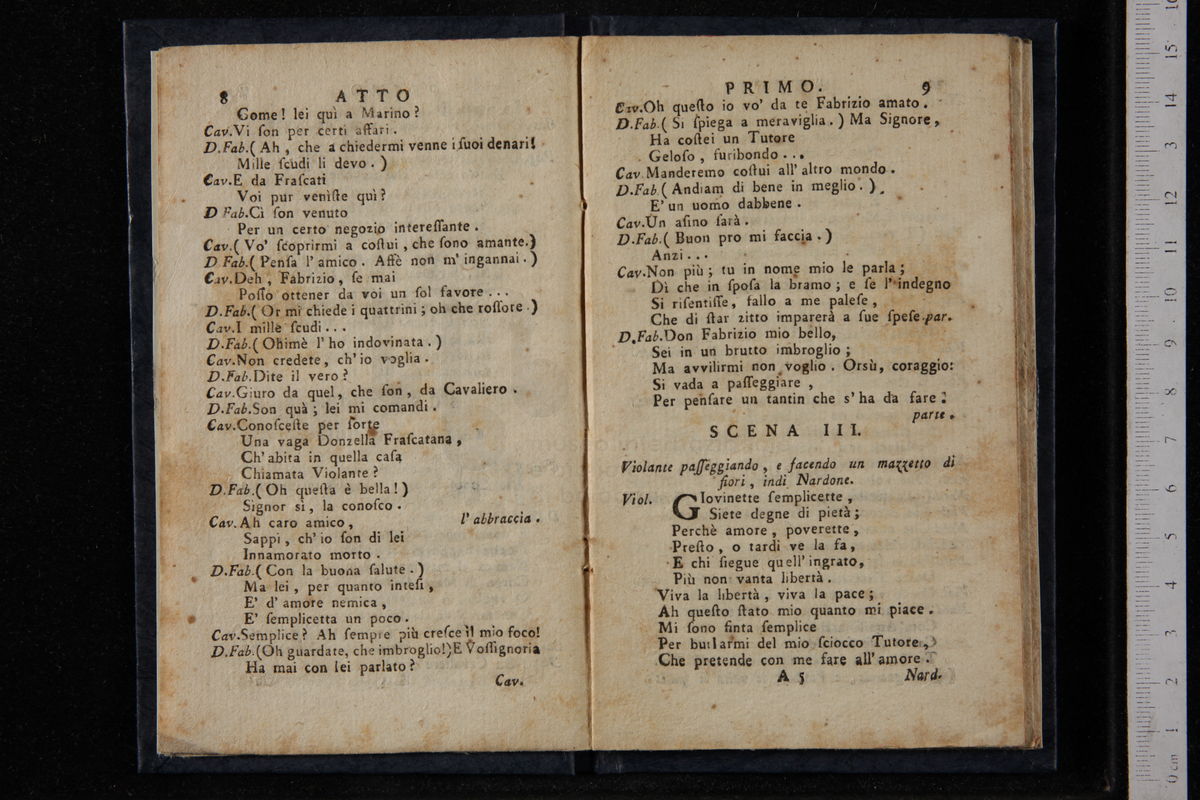 8 ATTO
Come! lei quì a Marino?
Cav.Vi ſon per certi affari.
D.Fab.(Ah, che a chiedermi venne i ſuoi denari!
Mille ſcudi li devo.)
Cav.E da Fraſcati
Voi pur veniſte quì?
D Fab.Cì ſon venuto
Per un certo negozio intereſſante.
Cav.(Vo' ſcoprirmi a coſtui, che ſono amante.)
D Fab.(Penſa l'amico. Affè non m'ingannai.)
Cav.Deh, Fabrizio, ſe mai
Poſſo ottener da voi un ſol favore...
D.Fab.(Or mi chiede i quattrini; oh che roſſore.)
Cav.I mille ſcudi...
D.Fab.(Ohimè l'ho indovinata.)
Cav.Non credete, ch'io voglia.
D.Fab.Dite il vero?
Cav.Giuro da quel, che ſon, da Cavaliero.
D.Fab.Son quà; lei mi comandi.
Cav.Conoſceſte per ſorte
Una vaga Donzella Fraſcatana,
Ch'abita in quella caſa
Chiamata Violante?
D.Fab.(Oh queſta è bella!)
Signor sì, la conoſco.
Cav.Ah caro amico, l'abbraccia.
Sappi, ch'io ſon di lei
Innamorato morto.
D.Fab.(Con la buona ſalute.)
Ma lei, per quanto inteſi,
E' d'amore nemica,
E' ſemplicetta un poco.
Cav.Semplice? Ah ſempre più creſce il mio foco!
D.Fab.(Oh guardate, che imbroglio!)E Voſſignoria
Ha mai con lei parlato?
Cav.
PRIMO. 9
Cav.Oh queſto io vo' da te Fabrizio amato.
D.Fab.(Si ſpiega a meraviglia.) Ma Signore,
Ha coſtei un Tutore
Geloſo, furibondo...
Cav.Manderemo coſtui all'altro mondo.
D.Fab(Andiam di bene in meglio.)
E' un uomo dabbene.
Cav.Un aſino ſarà.
D.Fab.(Buon pro mi faccia.)
Anzi...
Cav.Non più; tu in nome mio le parla;
Dì che in ſpoſa la bramo; e ſe l'indegno
Si riſentiſſe, fallo a me paleſe,
Che di ſtar zitto imparerà a ſue ſpeſe.par.
D.Fab.Don Fabrizio mio bello,
Sei in un brutto imbroglio;
Ma avvilirmi non voglio. Orsù, coraggio:
Si vada a paſſeggiare,
Per penſare un tantin che s'ha da fare.
parte.
SCENA III.
Violante paſſeggiando, e facendo un mazzetto di
fiori, indi Nardone.
Viol. GIovinette ſemplicette,
Siete degne di pietà;
Perchè amore, poverette,
Preſto, o tardi ve la fa,
E chi ſiegue quell'ingrato,
Più non vanta libertà.
Viva la libertà, viva la pace;
Ah queſto ſtato mio quanto mi piace.
Mi ſono finta ſemplice
Per burlarmi del mio ſciocco Tutore,
Che pretende con me fare all'amore.
A 5 Nard.
15
14
13
12
11
10
9
8
7
6
5
4
3
2
1
0 cm